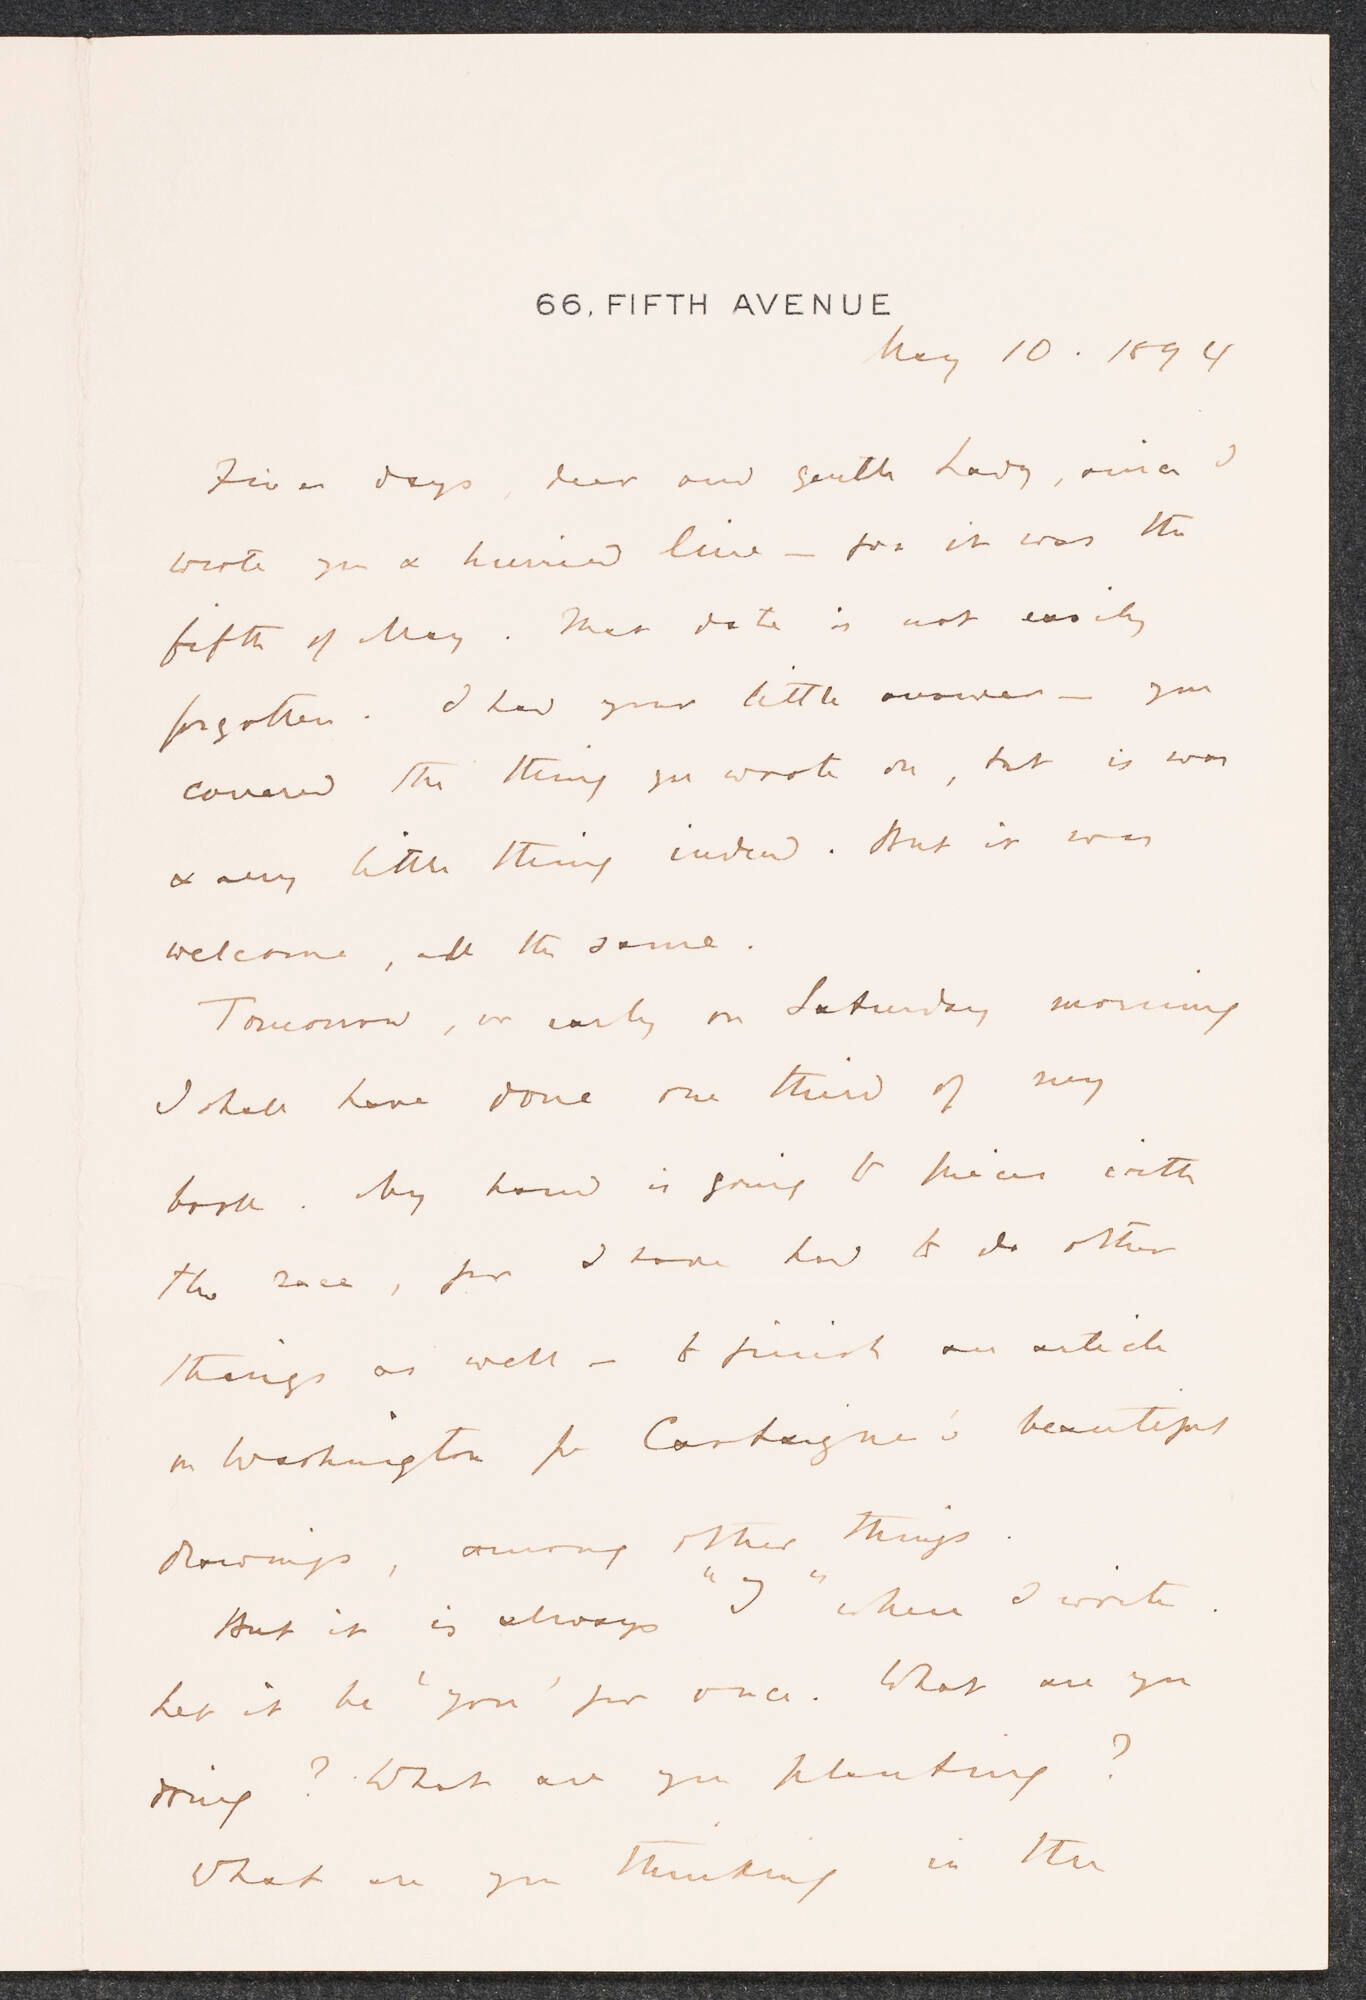 66, FIFTH AVENUE
May 10. 1894
Five days, dear and gentle Lady, since I
wrote you a hurried line — for it was the
fifth of May. That date is not easily
forgotten. I had your little answer — you
covered the thing you wrote on, but is was
a very little thing indeed. But it was
welcome, all the same.
Tomorrow, or early on Saturday morning
I shall have done one third of my
book. My hand is going to pieces with
the race, for I have had to do other
things as well — to finish an article
on Washington for Castaigne's beautiful
drawings, among other things.
But it is always "I" when I write.
Let it be 'you' for once. What are you
doing? What are you planting?
What are you thinking in the